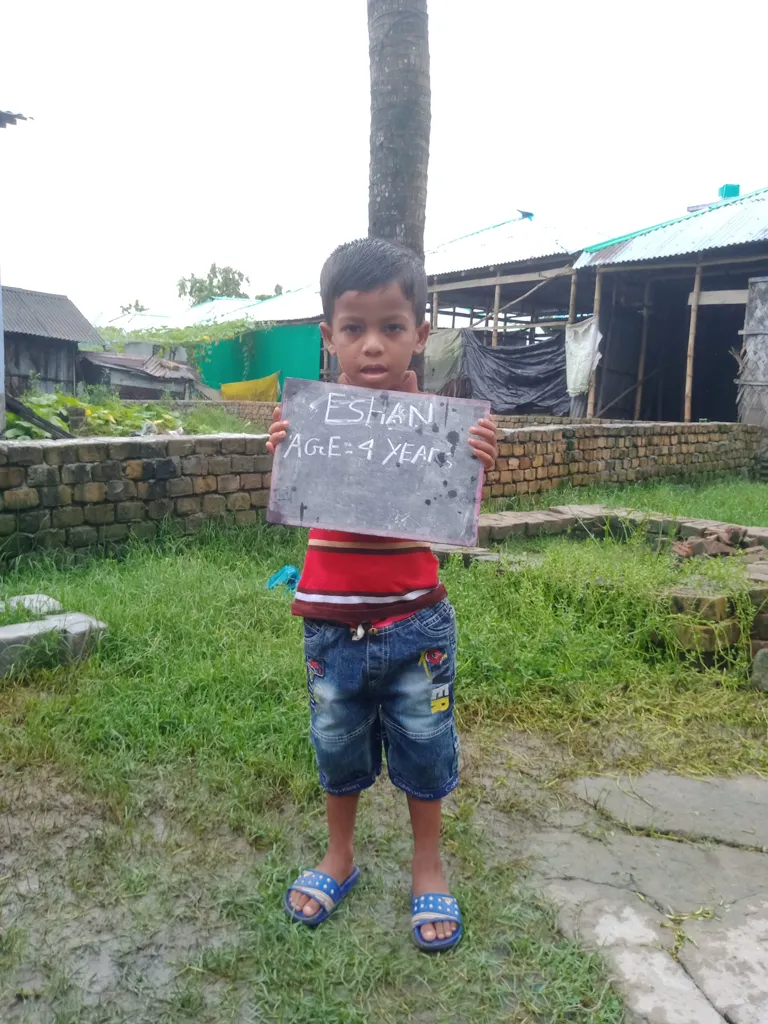 ESHAN
AGE=4 YEARS
VER